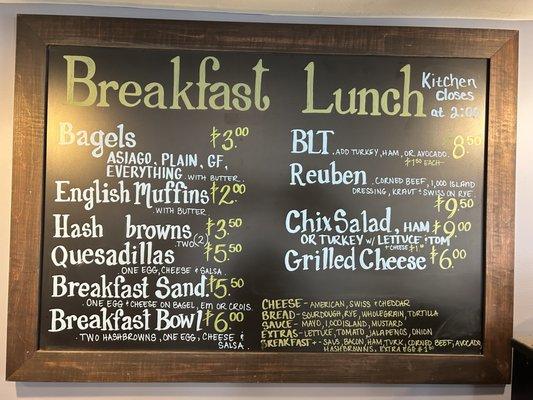 Breakfast
Bagels $3.00
ASIAGO, PLAIN, GF,
EVERYTHING. WITH BUTTER
English Muffins $2.00
. WITH BUTTER
Hash browns $3.50
TWO (2)
Quesadillas $5.50
ONE EGG, CHEESE & SALSA.
Breakfast Sand. $5.50
ONE EGG & CHEESE ON BAGEL, EM OR CROIS.
Breakfast Bowl $6.00
TWO HASHBROWNS, ONE EGG, CHEESE &
SALSA.
Lunch
Kitchen
closes
at 2:00
BLT. ADD TURKEY, HAM, OR AVOCADO. 8.50
$1.50 EACH
Reuben. CORNED BEEF, 1,000 ISLAND
DRESSING, KRAUT & SWISS ON RYE.
$9.50
Chix Salad, HAM $9.00
OR TURKEY W/ LETTUCE & TOM
+ CHEESE $1.00
Grilled Cheese $6.00
CHEESE - AMERICAN, SWISS & CHEDDAR
BREAD - SOURDOUGH, RYE, WHOLEGRAIN, TORTILLA
SAUCE - MAYO, 1,000 ISLAND, MUSTARD
EXTRAS - LETTUCE, TOMATO, JALAPENOS, ONION
BREAKFAST + - SAUS, BACON, HAM, TURK, CORNED BEEF, AVOCADO
HASHBROWNS, EXTRA EGG $1.50